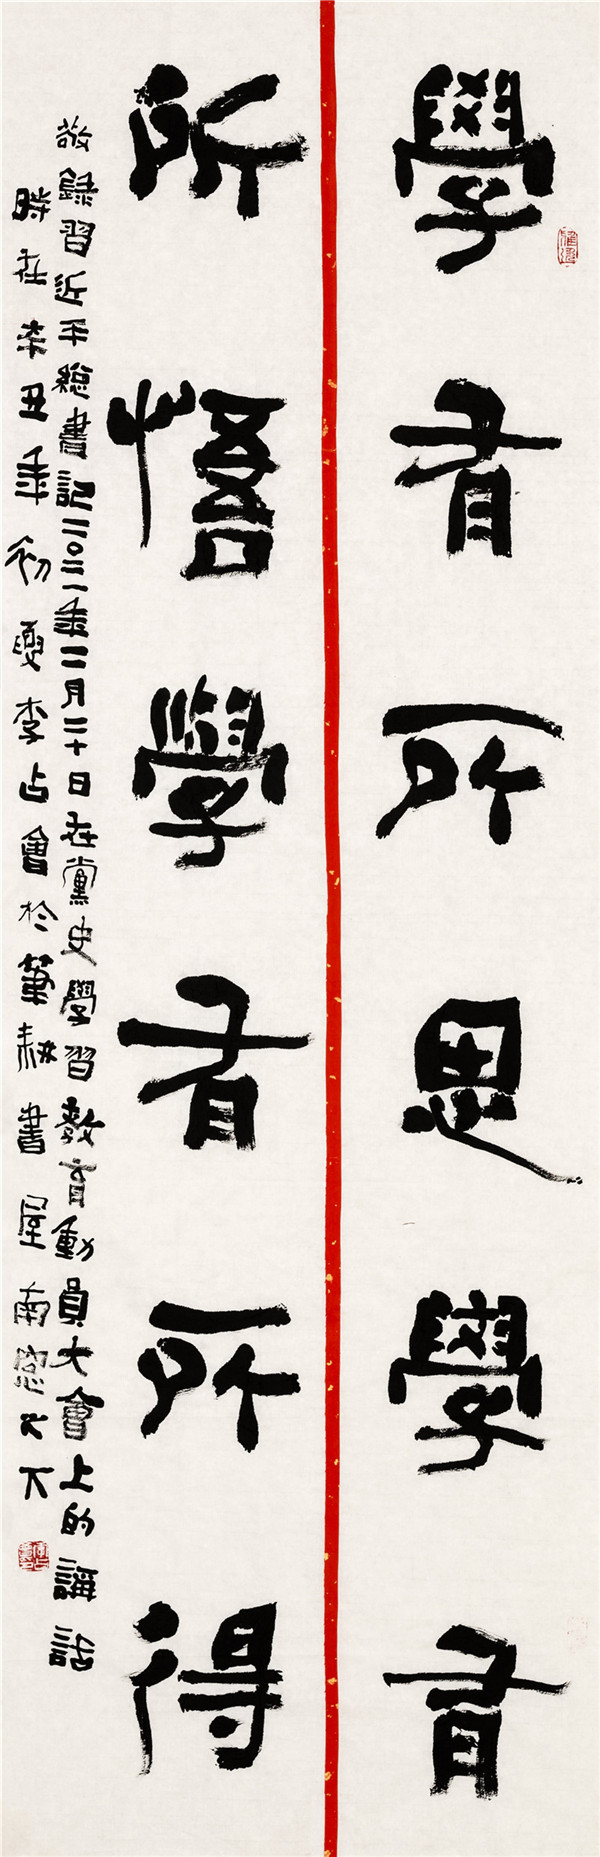 學有所思學有
所悟學有所得
敬錄習近平總書記二〇二一年二月二十日在黨史學習教育動員大會上的講話
時在辛丑年初夏李占會於筆耕書屋南窗之下